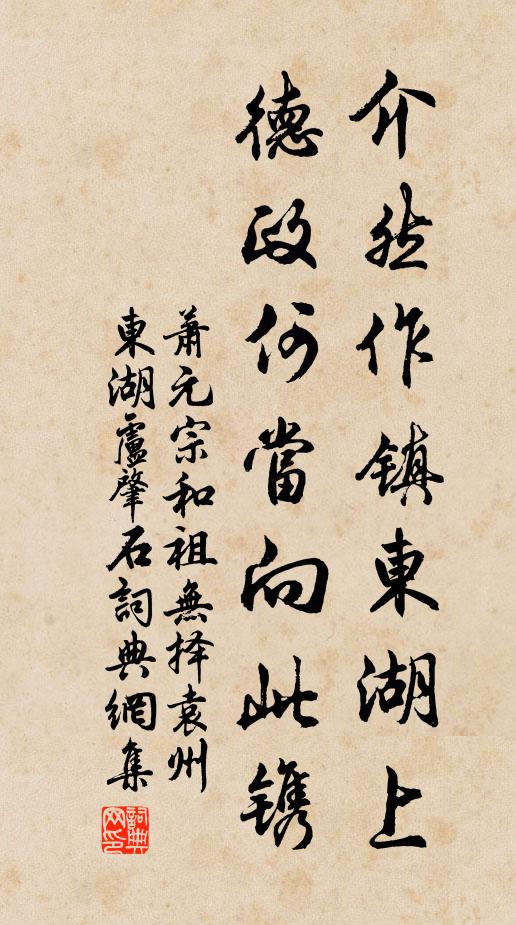 介然作镇東湖上
德政何當向此镌
蕭元宗和祖無择袁州
東湖盧肇石詞典網集
詞典网印